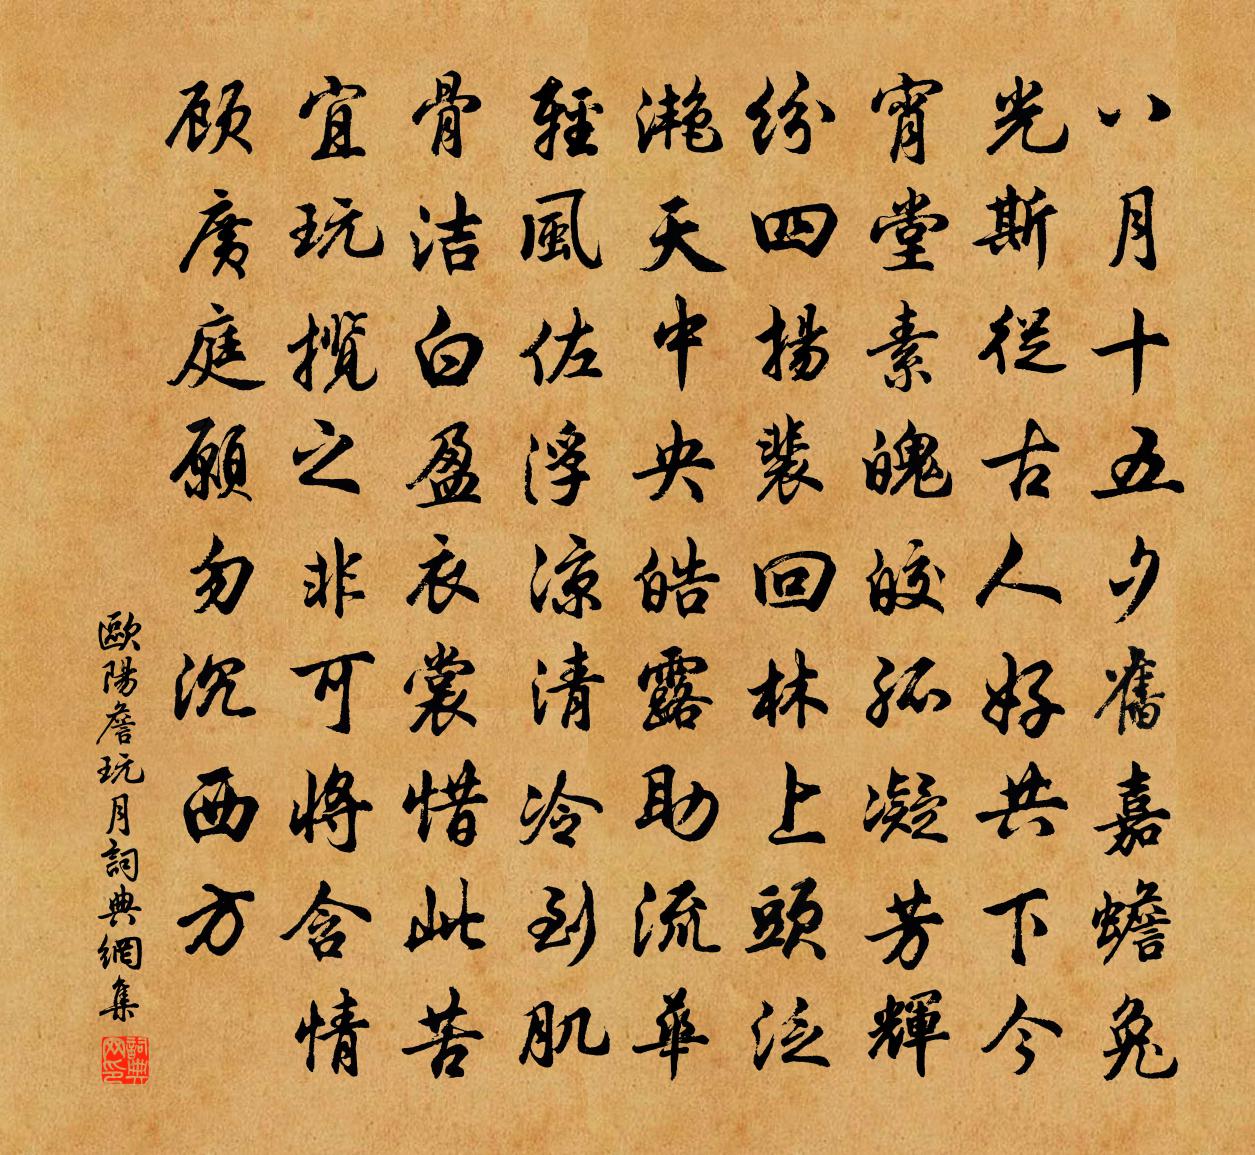 八月十五夕舊嘉蟾兔
光斯從古人好共下今
宵堂素魄皎孤凝芳輝
紛四揚裴回林上頭泛
滟天中央皓露助流華
輕風佐浮涼清冷到肌
骨洁白盈衣裳惜此苦
宜玩揽之非可將含情
顾廣庭願勿沉西方
歐陽詹玩月詞典網集
詞典网印